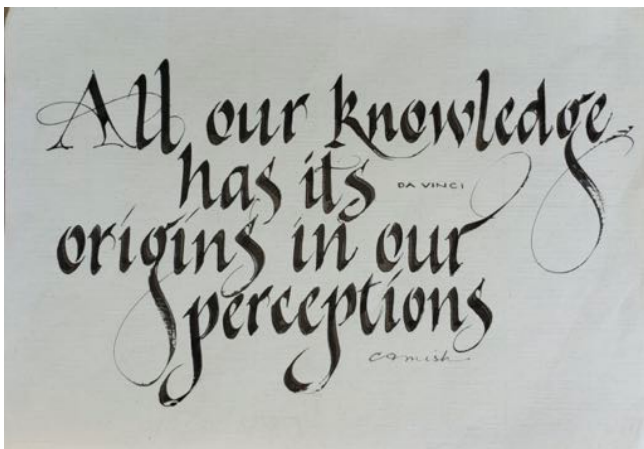 All our knowledge
has its DA VINCI
origins in our
perceptions